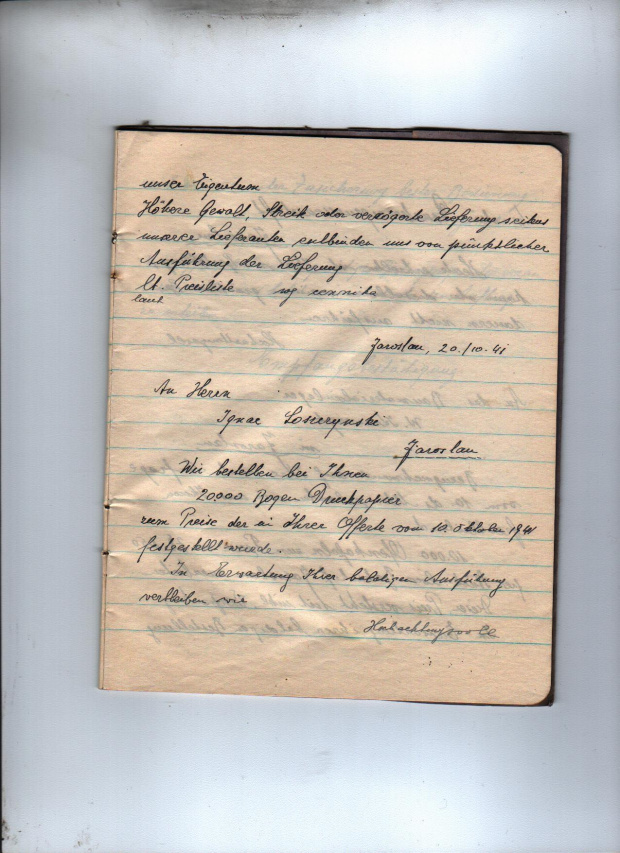 unser Eigentum
Höhere Gewalt, Streik oder verzögerte Lieferung seitens
unserer Lieferanten entbinden uns von pünktlicher
Ausführung der Lieferung
lt. Preisliste wg cennika
laut
Jaroslau, 20./10.41
An Herrn
Ignac Losiczynski
Jaroslau
Wir bestellen bei Ihnen
20000 Bogen Druckpapier
zum Preise der in Ihrer Offerte vom 10. Oktober 1941
festgestellt wurde.
In Erwartung Ihrer baldigen Ausführung
verbleiben wir
Hochachtungsvoll